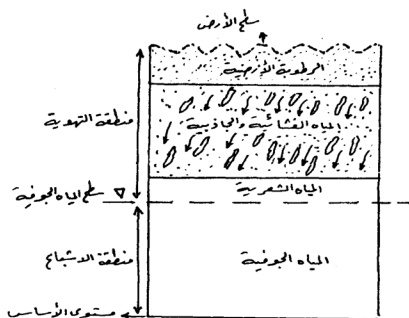 سطح الأرض
الرطوبة الأرضية
منطقة التهوية
المياه الغشائية والجاذبية
المياه الشعرية
سطح المياه الجوفية
منطقة الاشباع
المياه الجوفية
مستوى الأساس